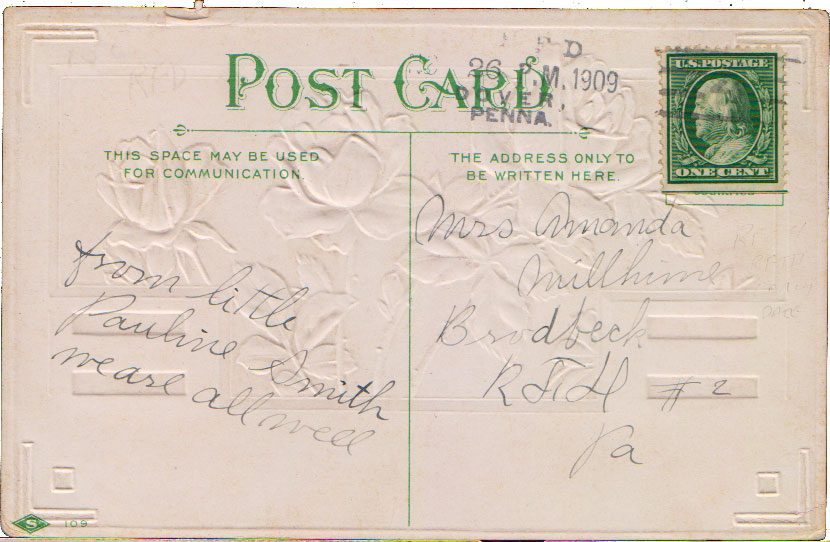 RFD
26 P.M. 1909
DOVER,
PENNA.
POST CARD
U.S. POSTAGE
ONE CENT
THIS SPACE MAY BE USED
FOR COMMUNICATION.
THE ADDRESS ONLY TO
BE WRITTEN HERE.
from little
Pauline Smith
we are all well
Mrs Amanda
Millhimer
Brodbeck
R F D #2
Pa
S 109